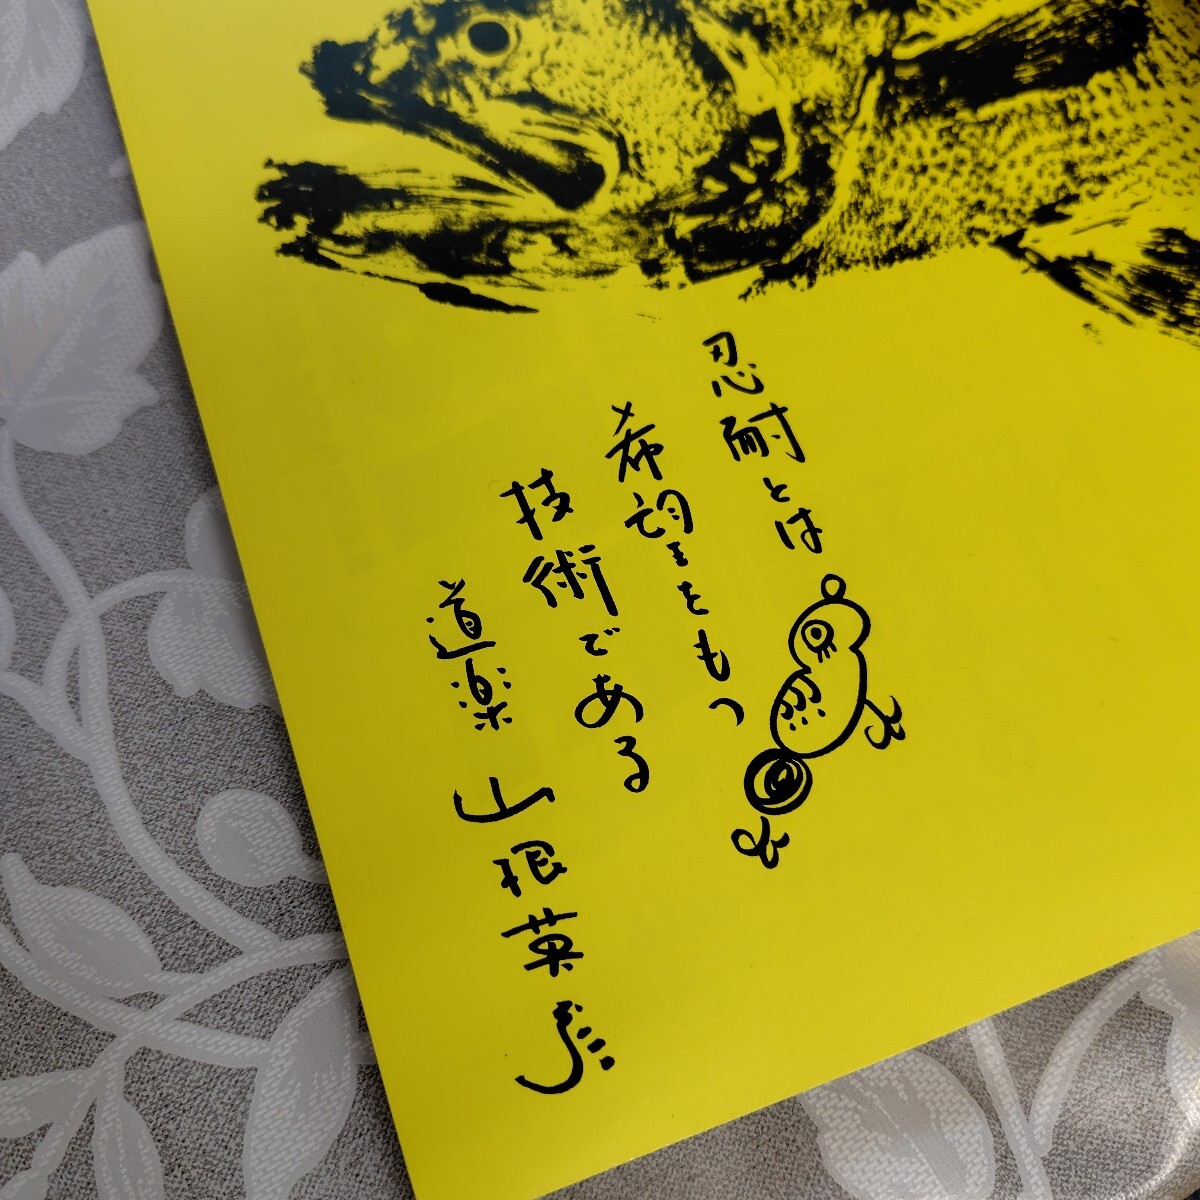 忍耐とは
希望をもつ
技術である
道楽 山根英彦